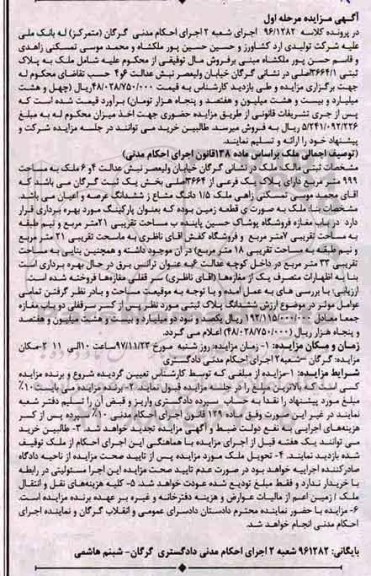 آگهی مـزایده مرحله اول
در پرونده کلاسه ۹۶/۱۲۸۲ اجرای شعبه ۲ اجرای احکام مدنی گرگان (متمرکز) له بانک ملی
علیه شرکت تولیدی آرد کشاورز و حسین حسین پور ملکشاه و محمد موسی تمسکی زاهدی
و قاسم حسن پور ملکشاه مبنی برفروش مال توقیفی از محکوم علیه شامل ملک به پلاک
ثبتی ۳۶۶۴/۱اصلی در نشانی گرگان خیابان ولیعصر نبش عدالت ۴و۶ حسب تقاضای محکوم له
جهت برگزاری مزایده و طی بازدید کارشناس به قیمت ۴۸/۰۲۸/۷۵۰/۰۰۰ریال (چهل و هشت
میلیارد و بیست و هشت میلیون و هفتصد و پنجاه هزار تومان) برآورد قیمت شده است که
پس از جری تشریفات قانونی از طریق مزایده حضوری جهت اخذ میزان محکوم له به مبلغ
۵/۲۴۱/۰۹۲/۲۲۶ ریال به فروش میرسد. طالبین خرید می توانند در جلسه مزایده شرکت و
پیشنهاد خود را ارائه و تسلیم نمایند.
(توصیف اجمالی ملک براساس ماده ۱۳۸قانون اجرای احکام مدنی)
مشخصات ثبتی مالک ملک در نشانی گرگان خیابان ولیعصر نبش عدالت ۴و ۶ ملک به مساحت
۹۹۹ متر مربع دارای پلاک یک فرعی از ۳۶۶۴اصلی بخش یک ثبت گرگان می باشد که
آقای محمد موسی تمسکی زاهی ملک ۱/۵ دانگ مشاع ز ششدانگ عرصه و اعیان می باشد.
مشخصات بنا: ملک به صورت ی قطعه زمین بوده که بعنوان پارکینگ مورد بهره برداری قرار
دارد. در زمان مغازه فروشگاه پوشاک حسین پاینده به مساحت تقریبی ۲۱متر مربع و نیم طبقه
به مساحت تقریبی ۷متر مربع و فروشگاه کفش آقای ناظری به ماسحت تقریبی ۲۱ متر مربع
و نیم طبقه به مساحت تقریبی ۱۸ متر مربع) در آن موجود داشته و همچنین بنایی به مساحت
تقریبی ۳۳ متر مربع در داخل کوچه عدالت ۶به عنوان ترانس برق در حال بهره برداری است.
بنا به اظهارات متصرف یکی از مغازه‌ها (آقای ناظری) سر قفلی مغازه‌ها فروخته شده است
ارزیابی: با بررسی های به عمل آمده و با توجه به موقعیت مساحت و بنادر نظر گرفتن تمامی
عوامل موثر در موضوع ارزش ششدانگ پلاک ثبتی مورد نظر پس از کسر سرقفلی دو باب مغازه
جمعا معادل ۱۹۲/۱۱۵/۰۰۰/۰۰۰ ریال یکصد و نود دو میلیارد و بیست و هشت میلیون و هفتصد
و پنجاه هزار ریال (۴۸/۰۲۸/۷۵۰/۰۰۰) اعلام می گردد.
زمان و مکان مزایده: ۱- زمان مزایده: روز شنبه مورخ ۹۷/۱۱/۲۳ساعت ۱۰الی ۱۱ ۲-مکان
مزایده: گرگان –شعبه۲ اجرای احکام مدنی دادگستری
شرایط مزایده: ۱-مزایده از مبلغی که توسط کارشناس تعیین گردیده شروع و برنده مزایده
کسی است که بالاترین مبلغ را در جلسه مزایده قبول نماید. ۲- برنده مزایده می بایست ۱۰٪
مبلغ مورد پیشنهاد را نقدا به حساب سپرده دادگستری واریز و قبض آن را تسلیم دفتر شعبه
نمایند در غیر این صورت وفق ماده ۱۲۹ قانون اجرای احکام مدنی ۱۰٪ سپرده پس از کسر
هزینه‌های اجرایی به نفع دولت ضبط و آگهی مزایده تجدید خواهد شد. ۳- طالبین خرید
می توانند یک هفته قبل از اجرای مزایده با هماهنگی این اجرای احکام از ملک توقیف
شده بازدید نمایند. ۴- تحویل ملک مورد مزایده پس از تایید صحت مزایده از ناحیه دادگاه
صادرکننده اجراییه خواهد بود در صورت عدم تایید صحت مزایده این اجرا مسئولیتی در رابطه
با خریدار ندارد و فقط مبلغ تودیع شده عودت خواهد شد. ۵- کلیه هزینه‌های نقل و انتقال
ملک ) زمین اعم از مالیات عوارض و هزینه دفترخانه و غیره بر عهده برنده مزایده است.
۶- مزایده با حضور نماینده محترم دادستان دادسرای عمومی و انقلاب گرگان و نماینده اجرای
احکام مدنی انجام خواهد شد.
بایگانی: ۹۶۱۲۸۲ شعبه ۲ اجرای احکام مدنی دادگستری گرگان- شبنم هاشمی